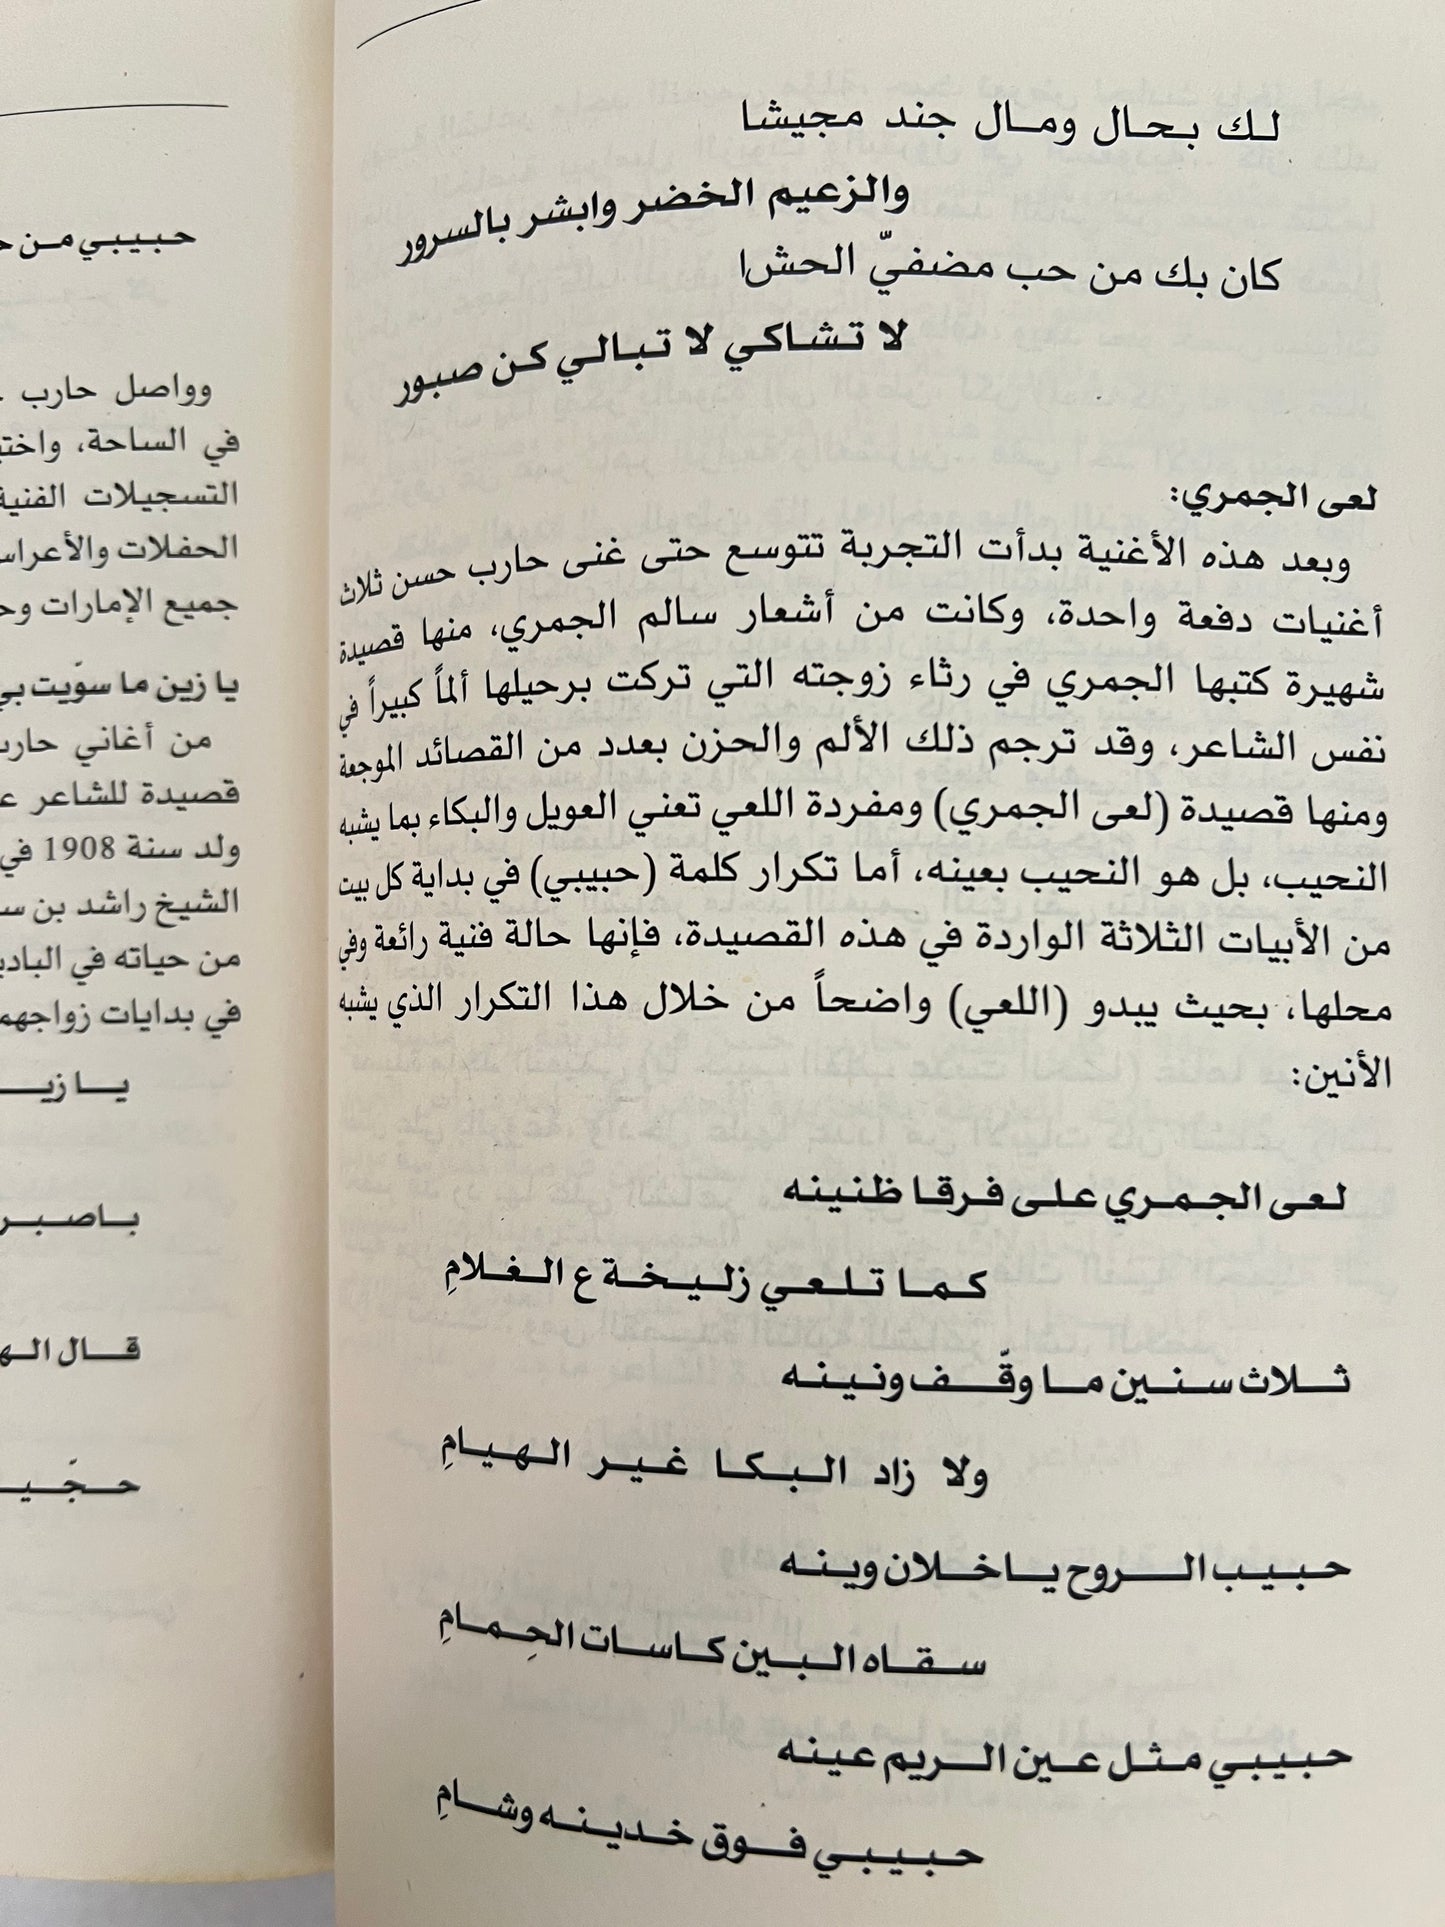 لـك بـحـال ومـال جند مجيشا
والزعيم الخضر وابشر بالسرور
كان بك من حب مضفيّ الحشا
لا تـشـاكـي لا تـبـالـي كـن صبور
لعى الجمري:
وبعد هذه الأغنية بدأت التجربة تتوسع حتى غنى حارب حسن ثلاث
أغنيات دفعة واحدة، وكانت من أشعار سالم الجمري، منها قصيدة
شهيرة كتبها الجمري في رثاء زوجته التي تركت برحيلها ألماً كبيراً في
نفس الشاعر، وقد ترجم ذلك الألم والحزن بعدد من القصائد الموجعة
ومنها قصيدة (لعى الجمري) ومفردة اللعي تعني العويل والبكاء بما يشبه
النحيب، بل هو النحيب بعينه، أما تكرار كلمة (حبيبي) في بداية كل بيت
من الأبيات الثلاثة الواردة في هذه القصيدة، فإنها حالة فنية رائعة وفي
محلها، بحيث يبدو (اللعي) واضحاً من خلال هذا التكرار الذي يشبه
الأنين:
لـعـى الـجـمـري عـلـى فـرقـا ظنينه
كـمـا تـلـعـي زلـيـخـة ع الـغـلامِ
ثـلاث سـنـين مـا وقّـف ونـيـنـه
ولا زاد الـبـكـا غـيـر الـهـيـامِ
حـبـيـب الـروح يـا خـلان ويـنـه
سـقـاه الـبـين كـاسـات الـحِـمـامِ
حـبـيـبـي مـثـل عـين الـريم عـيـنـه
حـبـيـبـي فـوق خـديـنـه وشـامِ
حـبـيـبـي مـن
وواصل حارب
في الساحة،
التسجيلات الفنية
الحفلات
جميع الإمارات
يا زين ما سوّيت بي
من أغاني
قصيدة للشاعر
ولد سنة 1908 في
الشيخ راشد بن
من حياته في
في بدايات زواجهم
بـاصـبـر
قـال